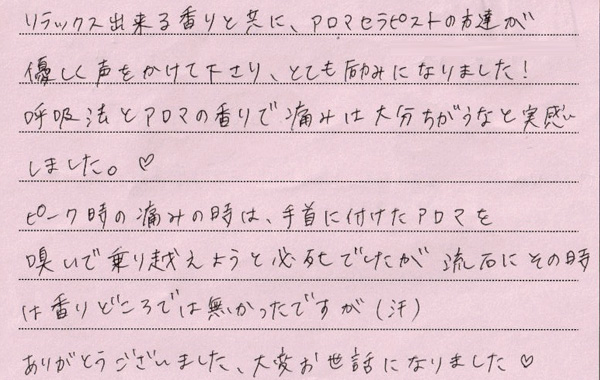 リラックス出来る香りと共に、アロマセラピストの方達が
優しく声をかけて下さり、とても励みになりました！
呼吸法とアロマの香りで痛みは大分ちがうなと実感い
しました。♡
ピーク時の痛みの時は、手首に付けたアロマを
嗅いで乗り越えようと必死でしたが流石にその時
は香りどころでは無かったですが（汗）
ありがとうございました、大変お世話になりました♡